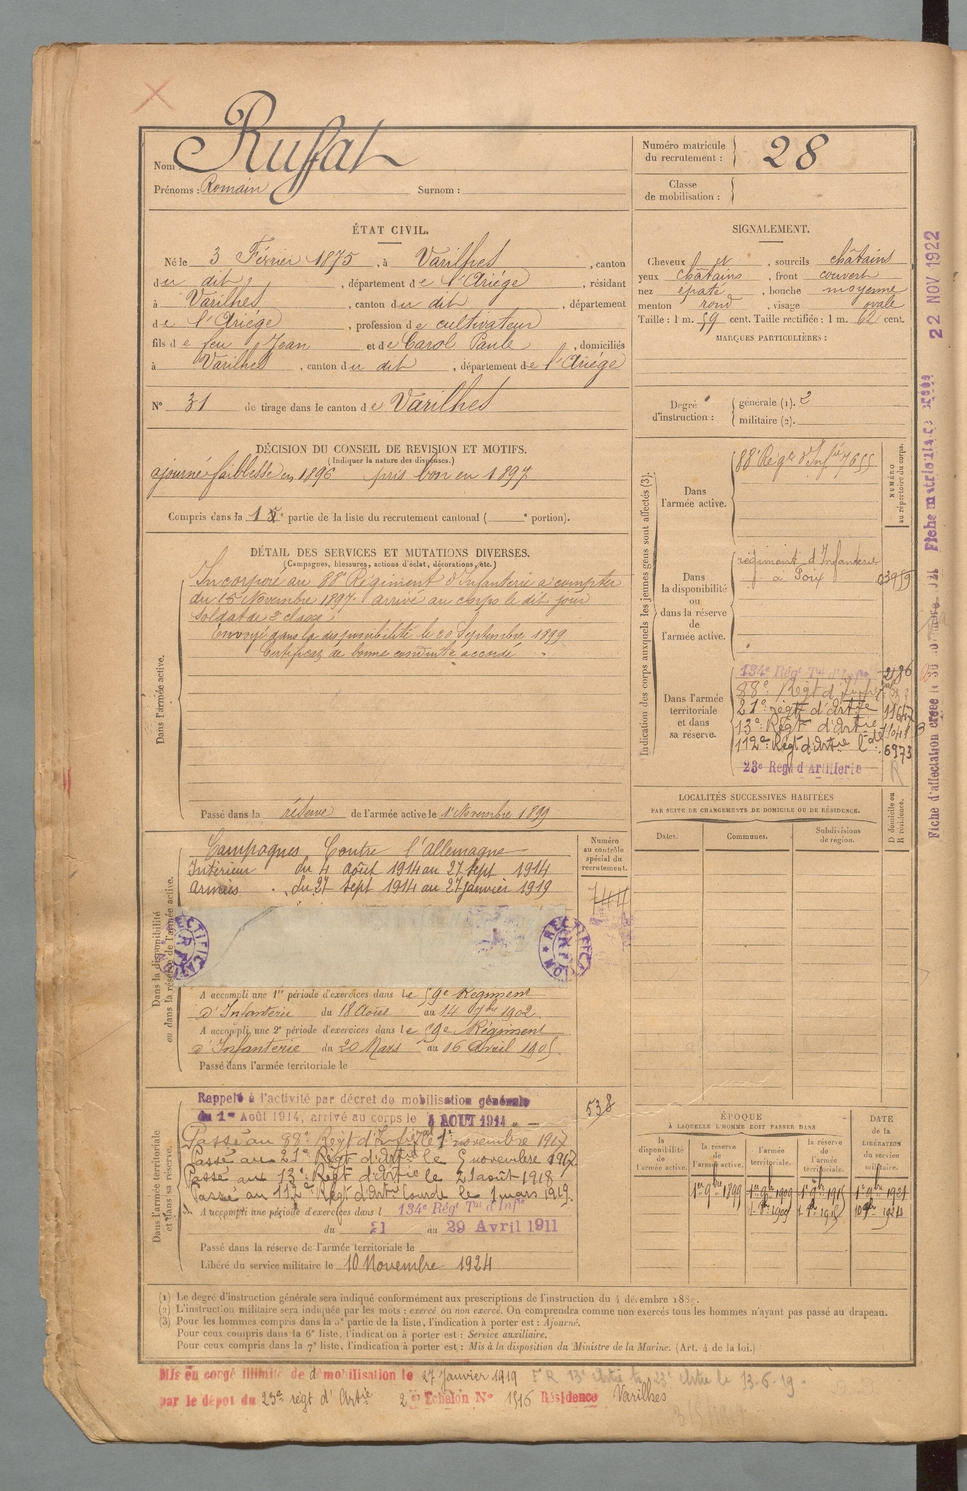 Nom : Ruffat
Prénoms : Romain Surnom :
Numéro matricule du recrutement : 28
Classe de mobilisation :
ÉTAT CIVIL.
Né le 3 Février 1875, à Varilhes, canton
du dit, département de l'Ariége, résidant
à Varilhes, canton du dit, département
de l'Ariége, profession de cultivateur
fils de feu Jean et de Carol Paule, domiciliés
à Varilhes, canton du dit, département de l'Ariége
N° 31 de tirage dans le canton de Varilhes
SIGNALEMENT.
Cheveux et, sourcils châtains
yeux châtains, front couvert
nez épaté, bouche moyenne
menton rond, visage ovale
Taille : 1 m. 59 cent. Taille rectifiée : 1 m. 62 cent.
MARQUES PARTICULIÈRES :
Degré d'instruction : générale (1). 2
militaire (2).
DÉCISION DU CONSEIL DE REVISION ET MOTIFS.
(Indiquer la nature des dispenses.)
ajourné faiblesse en 1896 pris bon en 1897
Compris dans la 1e partie de la liste du recrutement cantonal ( e portion).
DÉTAIL DES SERVICES ET MUTATIONS DIVERSES.
(Campagnes, blessures, actions d'éclat, décorations, etc.)
Dans l'armée active.
Incorporé au 88e Régiment d'infanterie à compter
du 15 Novembre 1897. arrivé au corps le dit jour
soldat de 2e classe
Envoyé dans la disponibilité le 20 Septembre 1899
Certificat de bonne conduite accordé.
Passé dans la réserve de l'armée active le 1 Novembre 1899
Indication des corps auxquels les jeunes gens sont affectés (3).
NUMÉRO au répertoire du corps.
Dans l'armée active.
88e Régt d'Infie 7655
Dans la disponibilité ou dans la réserve de l'armée active.
régiment d'Infanterie
à Foix
Dans l'armée territoriale et dans sa réserve.
134e Rég Tal d'Infie
88e Régt d'Infie
21e régt d'Artie
13e Régt d'Artie
112e Régt d'Artie Lde 6973
23e Régt d'Artillerie
LOCALITÉS SUCCESSIVES HABITÉES
PAR SUITE DE CHANGEMENTS DE DOMICILE OU DE RÉSIDENCE.
Dates. Communes. Subdivisions de région. D domicile ou R résidence.
Dans la disponibilité ou dans la réserve de l'armée active.
Numéro au contrôle spécial du recrutement.
Campagnes Contre l'Allemagne
Intérieur du 4 août 1914 au 27 sept 1914
Armées du 27 sept 1914 au 27 janvier 1919
RECTIFICATION
RECTIFICATION
A accompli une 1re période d'exercices dans le 59e Régiment
d'Infanterie du 18 Août au 14 7bre 1902.
A accompli une 2e période d'exercices dans le 59e Régiment
d'Infanterie du 20 Mars au 16 avril 1905.
Passé dans l'armée territoriale le
Dans l'armée territoriale et dans sa réserve.
Rappelé à l'activité par décret de mobilisation générale
du 1er Août 1914, arrivé au corps le 4 AOUT 1914
538
Passé au 88e Régt d'Infie le 1er novembre 1917
Passé au 21e Régt d'Artie le 5 novembre 1917
Passé au 13e Régt d'Artie le 21 août 1918
Passé au 112e Régt d'Artie Lourde le 1 mars 1919.
A accompli une période d'exercices dans l 134e Rég Tal d'Infie
du 21 au 29 Avril 1911
Passé dans la réserve de l'armée territoriale le
Libéré du service militaire le 10 Novembre 1924
ÉPOQUE
À LAQUELLE L'HOMME DOIT PASSER DANS
la disponibilité de l'armée active.
la réserve de l'armée active.
l'armée territoriale.
la réserve de l'armée territoriale.
DATE de la LIBÉRATION du service militaire.
1er 9bre 1899
(1) Le degré d'instruction générale sera indiqué conformément aux prescriptions de l'instruction du 4 décembre 1889.
(2) L'instruction militaire sera indiquée par les mots : exercé ou non exercé. On comprendra comme non exercés tous les hommes n'ayant pas passé au drapeau.
(3) Pour les hommes compris dans la 5e partie de la liste, l'indication à porter est : Ajourné.
Pour ceux compris dans la 6e liste, l'indication à porter est : Service auxiliaire.
Pour ceux compris dans la 7e liste, l'indication à porter est : Mis à la disposition du Ministre de la Marine. (Art. 4 de la loi.)
Mis en congé illimité de démobilisation le 27 Janvier 1919
par le dépôt du 23e régt d'Artie 2e Echelon N° 1516 Résidence Varilhes
22 NOV 1922